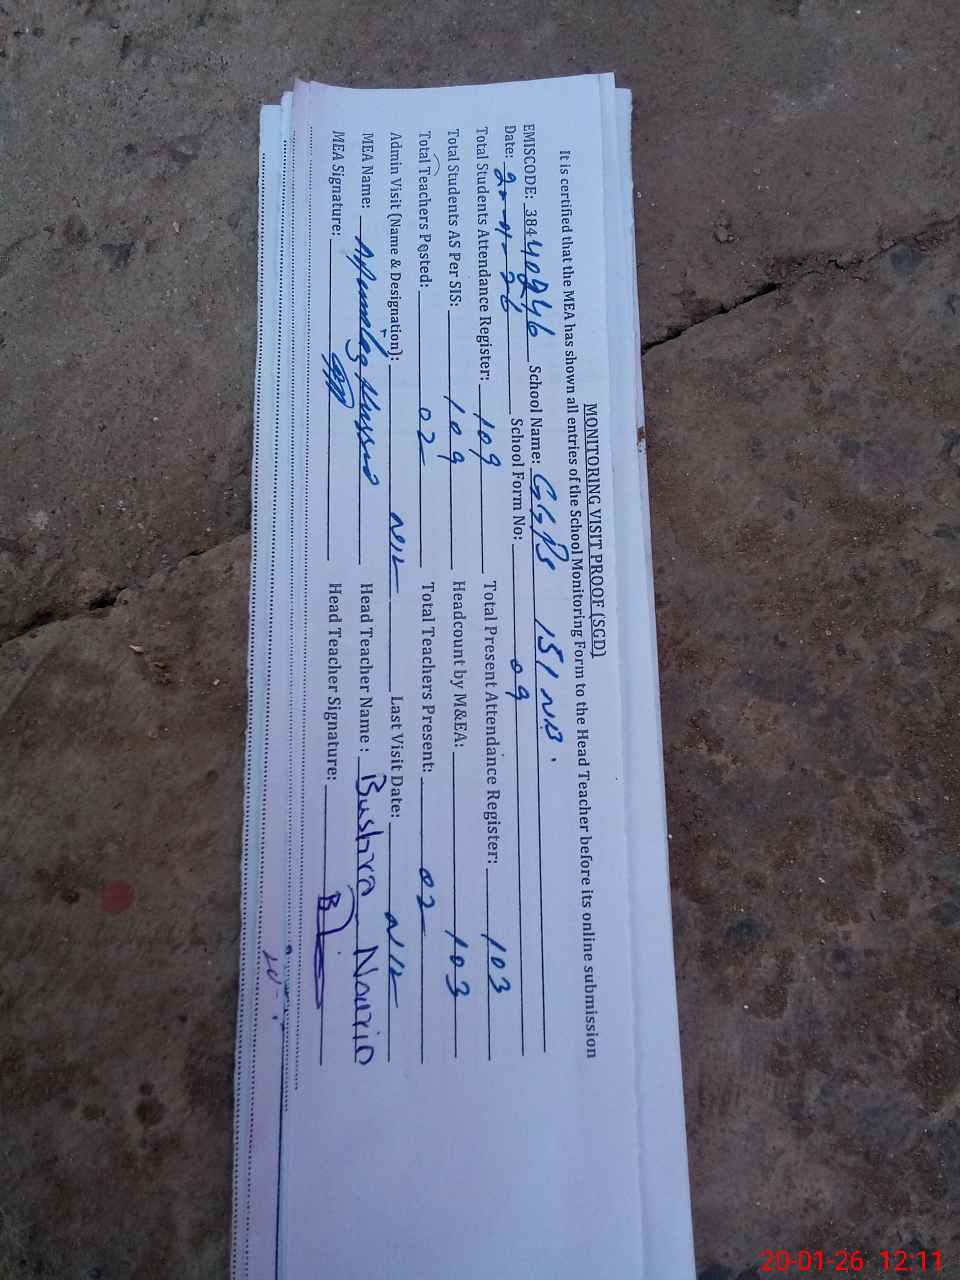 MONITORING VISIT PROOF (SGD)
It is certified that the MEA has shown all entries of the School Monitoring Form to the Head Teacher before its online submission
EMISCODE: 38440246 School Name: GGPS 151 N.B.
Date: 20-01-26 School Form No: 09
Total Students Attendance Register: 109 Total Present Attendance Register: 103
Total Students AS Per SIS: 109 Headcount by M&EA: 103
Total Teachers Posted: 02 Total Teachers Present: 02
Admin Visit (Name & Designation): NIL Last Visit Date: NIL
MEA Name: Hussain Head Teacher Name : Bushra Nourin
MEA Signature: Head Teacher Signature:
20-01-26 12:11